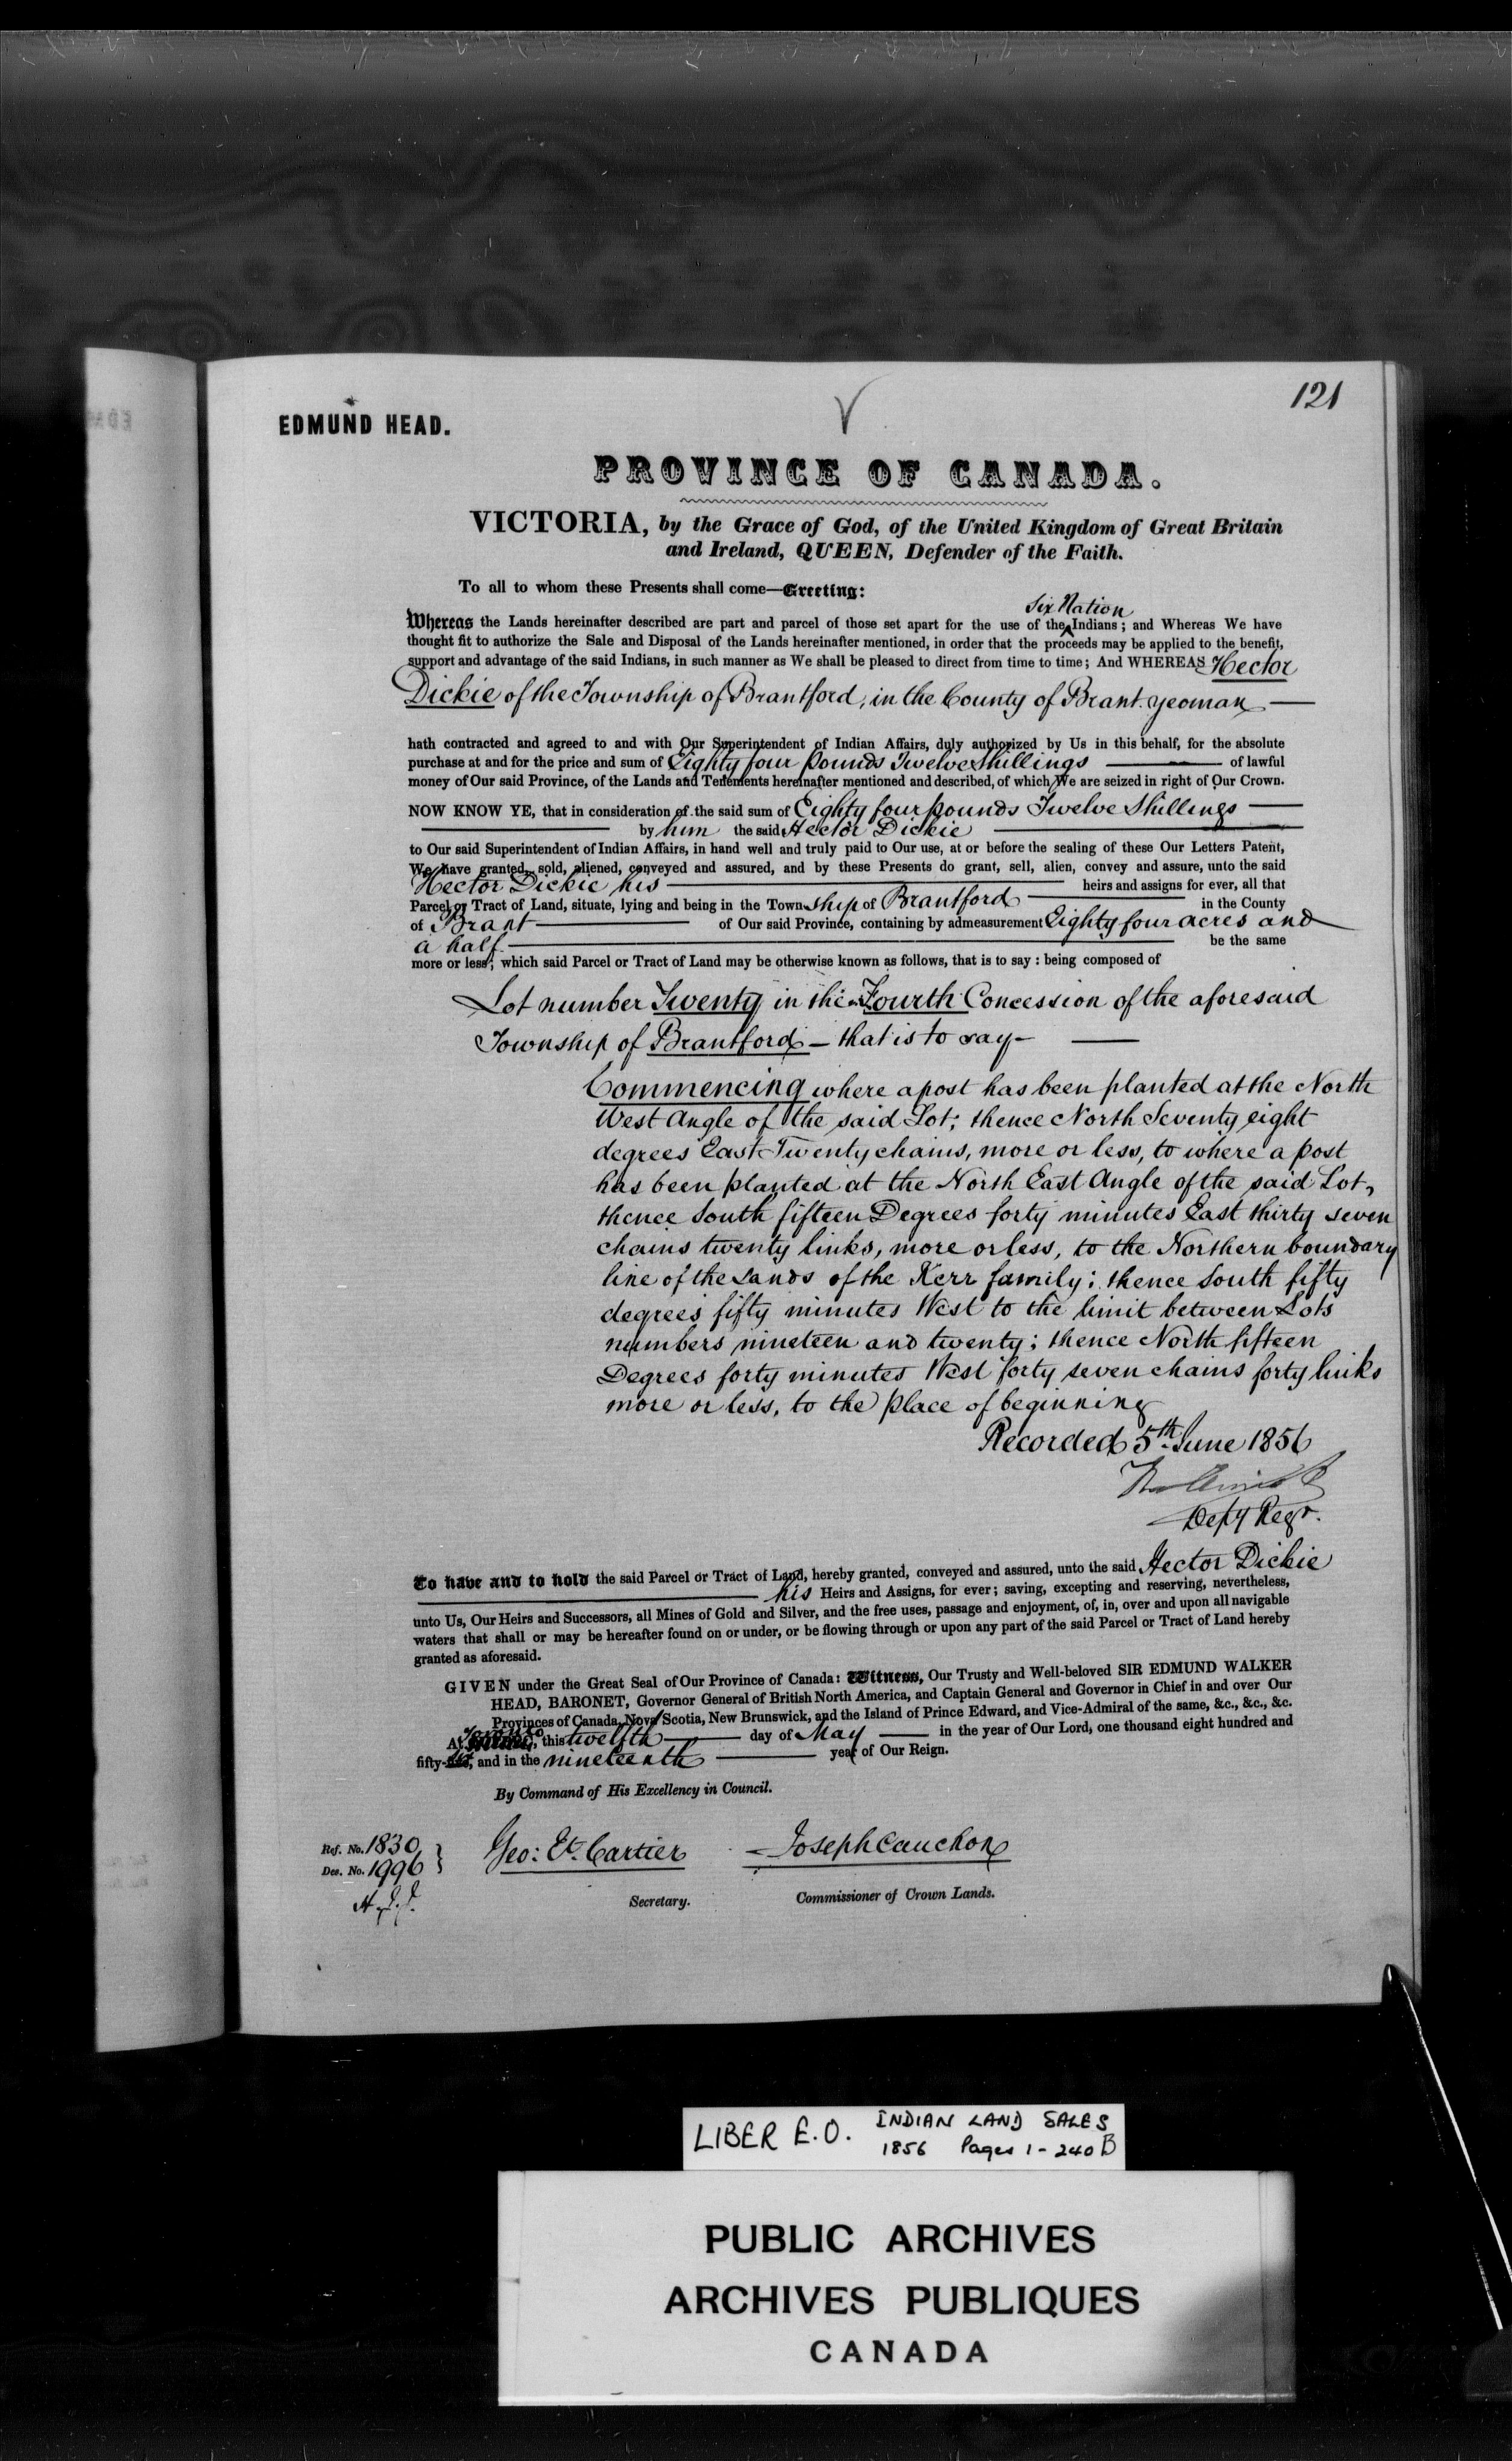 121
EDMUND HEAD.
PROVINCE OF CANADA.
VICTORIA, by the Grace of God, of the United Kingdom of Great Britain
and Ireland, QUEEN, Defender of the Faith.
To all to whom these Presents shall come—Greeting:
Six Nation
Whereas the Lands hereinafter described are part and parcel of those set apart for the use of the Indians; and Whereas We have
thought fit to authorize the Sale and Disposal of the Lands hereinafter mentioned, in order that the proceeds may be applied to the benefit,
support and advantage of the said Indians, in such manner as We shall be pleased to direct from time to time; And WHEREAS Hector
Dickie of the Township of Brantford, in the County of Brant. yeoman —
hath contracted and agreed to and with Our Superintendent of Indian Affairs, duly authorized by Us in this behalf, for the absolute
purchase at and for the price and sum of Eighty four pounds Twelve Shillings — of lawful
money of Our said Province, of the Lands and Tenements hereinafter mentioned and described, of which We are seized in right of Our Crown.
NOW KNOW YE, that in consideration of the said sum of Eighty four pounds Twelve Shillings —
— by him the said Hector Dickie —
to Our said Superintendent of Indian Affairs, in hand well and truly paid to Our use, at or before the sealing of these Our Letters Patent,
We have granted, sold, aliened, conveyed and assured, and by these Presents do grant, sell, alien, convey and assure, unto the said
Hector Dickie his — heirs and assigns for ever, all that
Parcel or Tract of Land, situate, lying and being in the Township of Brantford — in the County
of Brant — of Our said Province, containing by admeasurement Eighty four acres and
a half — be the same
more or less; which said Parcel or Tract of Land may be otherwise known as follows, that is to say: being composed of
Lot number Twenty in the Fourth Concession of the aforesaid
Township of Brantford — that is to say — —
Commencing where a post has been planted at the North
West Angle of the said Lot; thence North Seventy eight
degrees East Twenty chains, more or less, to where a post
has been planted at the North East Angle of the said Lot,
thence South fifteen Degrees forty minutes East thirty seven
chains twenty links, more or less, to the Northern boundary
line of the Lands of the Kerr family; thence South fifty
degrees fifty minutes West to the limit between Lots
numbers nineteen and twenty; thence North fifteen
Degrees forty minutes West forty seven chains forty links
more or less, to the place of beginning
Recorded 5th June 1856
Depy Regr.
To have and to hold the said Parcel or Tract of Land, hereby granted, conveyed and assured, unto the said Hector Dickie
— his Heirs and Assigns, for ever; saving, excepting and reserving, nevertheless,
unto Us, Our Heirs and Successors, all Mines of Gold and Silver, and the free uses, passage and enjoyment, of, in, over and upon all navigable
waters that shall or may be hereafter found on or under, or be flowing through or upon any part of the said Parcel or Tract of Land hereby
granted as aforesaid.
GIVEN under the Great Seal of Our Province of Canada: Witness, Our Trusty and Well-beloved SIR EDMUND WALKER
HEAD, BARONET, Governor General of British North America, and Captain General and Governor in Chief in and over Our
Provinces of Canada, Nova Scotia, New Brunswick, and the Island of Prince Edward, and Vice-Admiral of the same, &c., &c., &c.
At Toronto, this twelfth — day of May — in the year of Our Lord, one thousand eight hundred and
fifty-six, and in the nineteenth — year of Our Reign.
By Command of His Excellency in Council.
Ref. No. 1830
Des. No. 1996
Geo: Et. Cartier
Joseph Cauchon
Secretary.
Commissioner of Crown Lands.
LIBER E.O. INDIAN LAND SALES
1856 Pages 1-240 B
PUBLIC ARCHIVES
ARCHIVES PUBLIQUES
CANADA